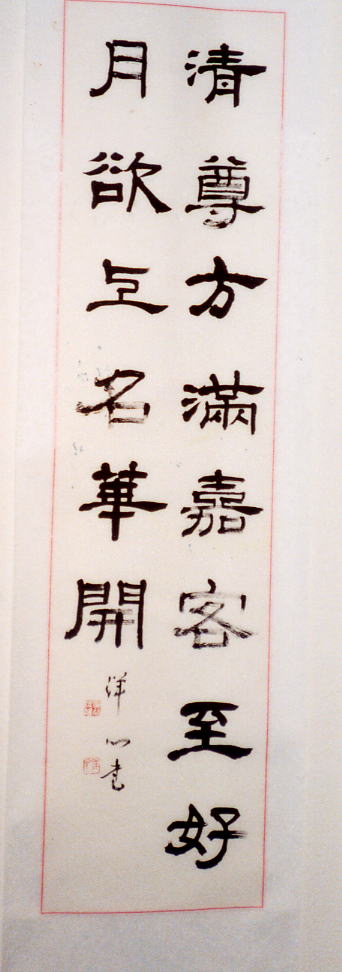 清尊方滿嘉客至好
月欲上名華開
洋心書